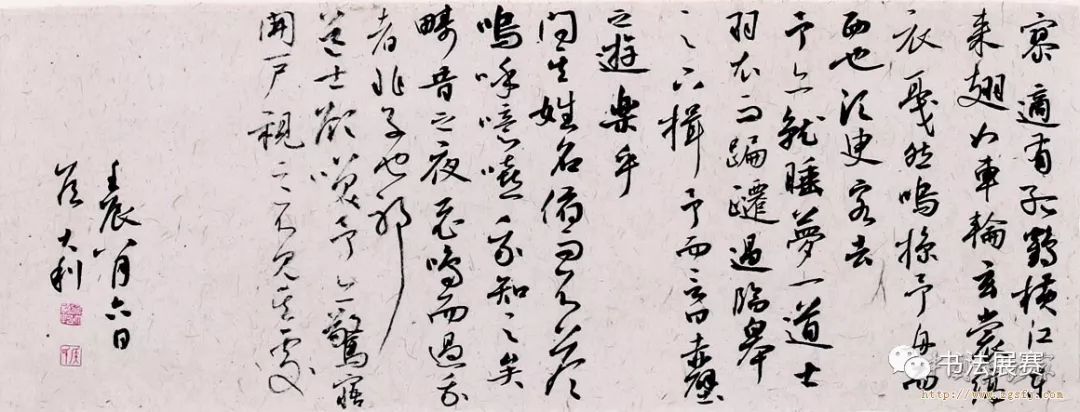 寥適有孤鶴橫江東
来翅如車輪玄裳縞
衣戛然鳴掠予舟而
西也須臾客去
予亦就睡夢一道士
羽衣而蹁躚過臨皋
之下揖予而言曰赤壁
之遊樂乎
問其姓名俯而不答
嗚呼噫嘻我知之矣
疇昔之夜飛鳴而過我
者非子也耶
道士顧笑予亦驚寤
開戶視之不見其處
壬辰八月六日
大利
书法展赛